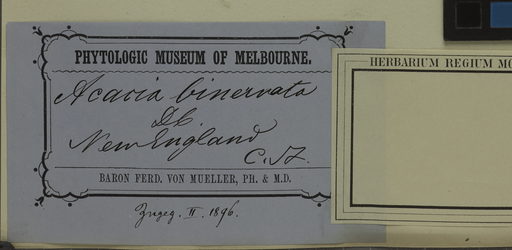 PHYTOLOGIC MUSEUM OF MELBOURNE.
Acacia binervata
DC.
New England
C. St.
BARON FERD. VON MUELLER, PH. & M.D.
Zugeg. II. 1896.
HERBARIUM REGIUM MO